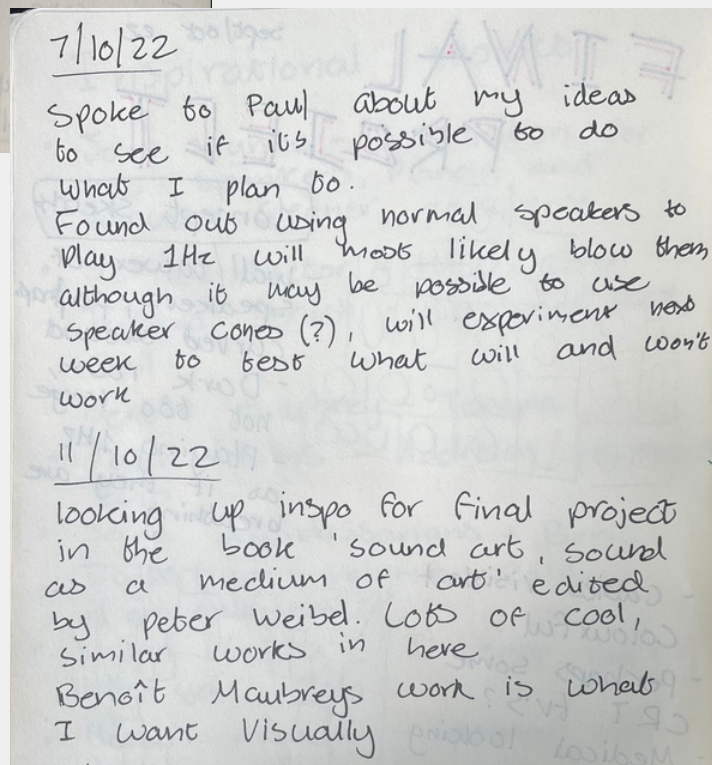 7/10/22
Spoke to Paul about my ideas
to see if its possible to do
what I plan to.
Found out using normal speakers to
play 1Hz will most likely blow them
although it may be possible to use
speaker cones (?), will experiment next
week to test what will and won't
work
11/10/22
looking up inspo for final project
in the book 'sound art, sound
as a medium of art' edited
by peter weibel. Lots of cool,
similar works in here
Benoît Maubreys work is what
I want visually